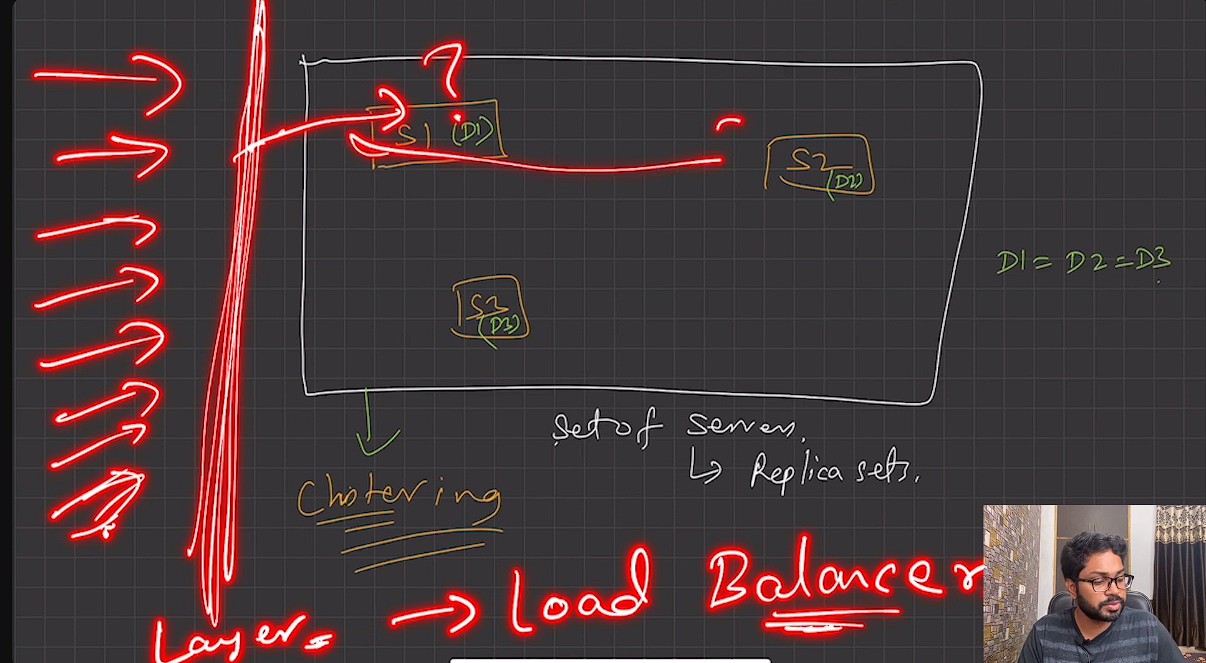 ?
S1 (D1)
S2
(D2)
D1 = D2 = D3
S3
(D3)
set of servers.
↳ Replica sets.
Clustering
Layer. → Load Balancer